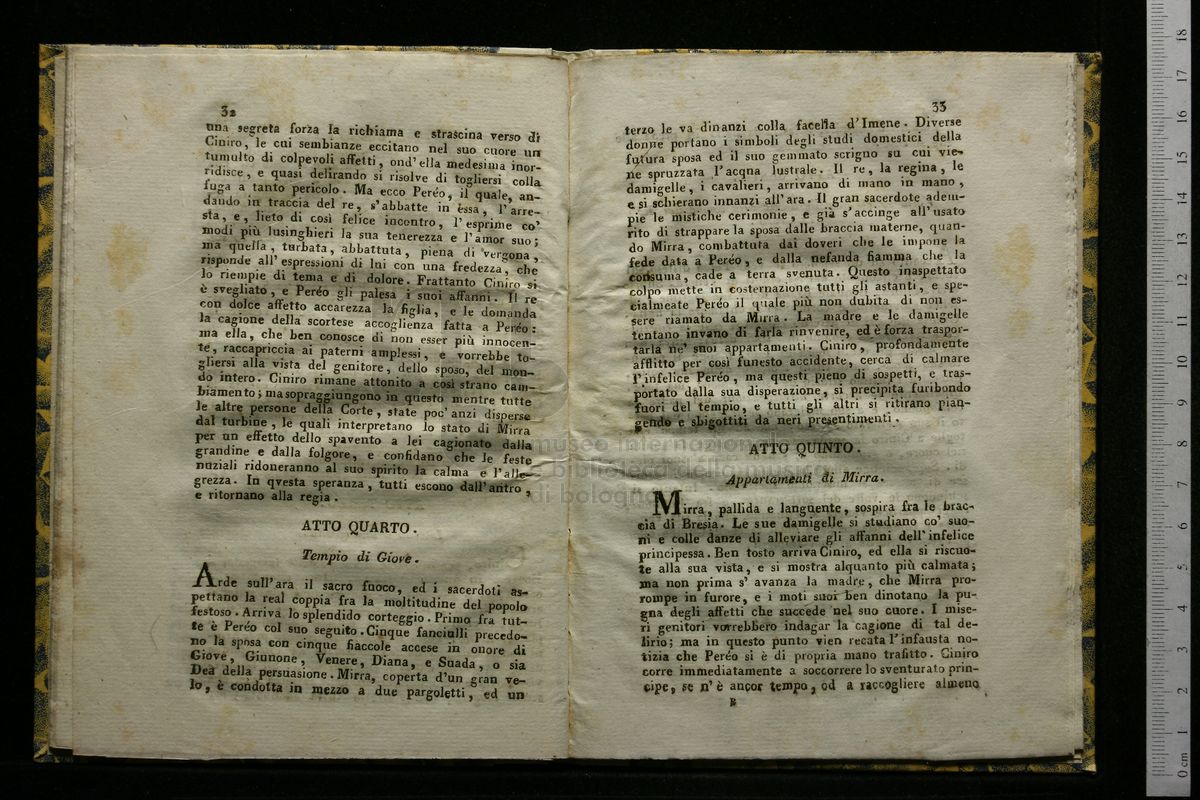 32
una segreta forza la richiama e strascina verso di
Ciniro, le cui sembianze eccitano nel suo cuore un
tumulto di colpevoli affetti, ond'ella medesima inor-
ridisce, e quasi delirando si risolve di togliersi colla
fuga a tanto pericolo. Ma ecco Peréo, il quale, an-
dando in traccia del re, s'abbatte in essa, l'arre-
sta, e, lieto di così felice incontro, l'esprime co'
modi più lusinghieri la sua tenerezza e l'amor suo;
ma quella, turbata, abbattuta, piena di vergona,
risponde all'espressioni di lui con una fredezza, che
lo riempie di tema e di dolore. Frattanto Ciniro si
è svegliato, e Peréo gli palesa i suoi affanni. Il re
con dolce affetto accarezza la figlia, e le domanda
la cagione della scortese accoglienza fatta a Peréo:
ma ella, che ben conosce di non esser più innocen-
te, raccapriccia ai paterni amplessi, e vorrebbe to-
gliersi alla vista del genitore, dello sposo, del mon-
do intero. Ciniro rimane attonito a così strano cam-
biamento; ma sopraggiungono in questo mentre tutte
le altre persone della Corte, state poc'anzi disperse
dal turbine, le quali interpretano lo stato di Mirra
per un effetto dello spavento a lei cagionato dalla
grandine e dalla folgore, e confidano che le feste
nuziali ridoneranno al suo spirito la calma e l'alle-
grezza. In qvesta speranza, tutti escono dall'antro,
e ritornano alla regia.
ATTO QUARTO.
Tempio di Giove.
Arde sull'ara il sacro fuoco, ed i sacerdoti as-
pettano la real coppia fra la moltitudine del popolo
festoso. Arriva lo splendido corteggio. Primo fra tut-
te è Peréo col suo seguito. Cinque fanciulli precedo-
no la sposa con cinque fiaccole accese in onore di
Giove, Giunone, Venere, Diana, e Suada, o sia
Dea della persuasione. Mirra, coperta d'un gran ve-
lo, è condotta in mezzo a due pargoletti, ed un
33
terzo le va dinanzi colla facella d'Imene. Diverse
donne portano i simboli degli studi domestici della
futura sposa ed il suo gemmato scrigno su cui vie-
ne spruzzata l'acqna lustrale. Il re, la regina, le
damigelle, i cavalieri, arrivano di mano in mano,
e si schierano innanzi all'ara. Il gran sacerdote adem-
pie le mistiche cerimonie, e già s'accinge all'usato
rito di strappare la sposa dalle braccia materne, quan-
do Mirra, combattuta dai doveri che le impone la
fede data a Peréo, e dalla nefanda fiamma che la
consuma, cade a terra svenuta. Questo inaspettato
colpo mette in costernazione tutti gli astanti, e spe-
cialmeate Peréo il quale più non dubita di non es-
sere riamato da Mirra. La madre e le damigelle
tentano invano di farla rinvenire, ed è forza traspor-
tarla ne' suoi appartamenti. Ciniro, profondamente
afflitto per così funesto accidente, cerca di calmare
l'infelice Peréo, ma questi pieno di sospetti, e tras-
portato dalla sua disperazione, si precipita furibondo
fuori del tempio, e tutti gli altri si ritirano pian-
gendo e sbigottiti da neri presentimenti.
ATTO QUINTO.
Appartamenti di Mirra.
Mirra, pallida e languente, sospira fra le brac-
cia di Bresia. Le sue damigelle si studiano co' suo-
ni e colle danze di alleviare gli affanni dell'infelice
principessa. Ben tosto arriva Ciniro, ed ella si riscuo-
te alla sua vista, e si mostra alquanto più calmata;
ma non prima s'avanza la madre, che Mirra pro-
rompe in furore, e i moti suoi ben dinotano la pu-
gna degli affetti che succede nel suo cuore. I mise-
ri genitori vorrebbero indagar la cagione di tal de-
lirio; ma in questo punto vien recata l'infausta no-
tizia che Peréo si è di propria mano trafitto. Ciniro
corre immediatamente a soccorrere lo sventurato prin-
cipe, se n'è ancor tempo, od a raccogliere almeno
B
museo internazionale
e biblioteca della musica
di bologna
0 cm 1 2 3 4 5 6 7 8 9 10 11 12 13 14 15 16 17 18